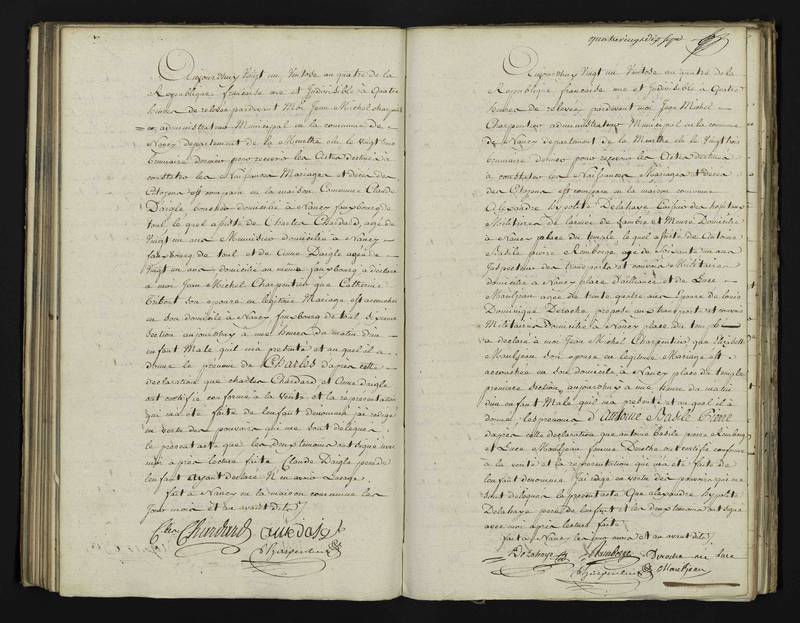 Aujourdhuy Vingt un Ventose an quatre de la
Republique francaise une et Indivisible à Quatre
heures de relevée pardevant Moi Jean Michel charpen
administrateur Municipal en la commune de
Nancy departement de la Meurthe élu le Vingt trois
brumaire dernier pour recevoir les Actes destinés à
constater les Naissances Mariages et décès des
Citoyens est comparu en la maison Commune Claude
Daigle domicilié à Nancy fauxbourg de
toul, le quel assisté de Charles Chardard, agé de
Vingt un ans Menuisier domicilié à Nancy
fauxbourg de toul et de Anne Daigle agée de
Vingt un ans domicilié au même fauxbourg a déclaré
à moi Jean Michel Charpentier que Catherine
son epouse en légitime Mariage est accouchée
en son domicile à Nancy fauxbourg de toul
section aujourdhuy à une heure du matin d'un
enfant Male qu'il m'a présenté et au quel il a
donné le prénom de Charles d'après cette
déclaration que charles Chardard et Anne Daigle
ont certifié conforme à la Vérité et la représentation
qui m'a été faite de l'enfant dénommé j'ai rédigé
en vertu des pouvoirs qui me sont délégués
le présent acte que les deux temoins ont signé avec
moi après lecture faite Claude Daigle père de
l'enfant ayant déclaré N'en avoir L'usage
fait à Nancy en la maison commune les
jour mois et an avant dits
Chardard
Charpentier
quatrevingt dix sept
Aujourdhuy Vingt un Ventose an quatre de la
Republique francaise une et Indivisible à Quatre
heures de relevée pardevant moi Jean Michel
Charpentier administrateur Municipal en la commune
de Nancy departement de la Meurthe élu le Vingt trois
brumaire dernier pour recevoir les Actes destinés
à constater les Naissances Mariages et décès
des Citoyens est comparu en la maison commune
Alexandre hypolite Delahaye des hopitaux
Militaires de l'armée de Sambre et Meuse Domicilié
à Nancy place du temple, le quel assisté de Antoine
Basile pierre agé de soixante un ans
Inspecteur des transports et convois Militaires
domicilié à Nancy place d'alliance et de Luce
Mauljean agée de trente quatre ans Epouse de louis
Dominique Deroche, préposé aux transports et convois
Militaires domicilié à Nancy place du temple
a déclaré à moi Jean Michel Charpentier que Elizabeth
Mauljean son épouse en légitime Mariage est
accouchée en son domicile à Nancy place du temple
première section, aujourdhuy à une heure du matin
d'un enfant Male qu'il m'a présenté et au quel il a
donné les prénoms d'Antoine Basile Pierre
d'après cette déclaration que antoine basile pierre
et Luce Mauljean femme Deroche ont certifié conforme
à la verité et la représentation qui m'a été faite de
l'enfant dénommé J'ai rédigé en vertu des pouvoirs qui me
sont délégués le présent acte Que alexandre hypolite
Delahaye père de l'enfant et les deux temoins ont signé
avec moi après lecture faite
fait à Nancy les jour mois et an avant dits
Delahaye Deroche née Luce
Charpentier Mauljean